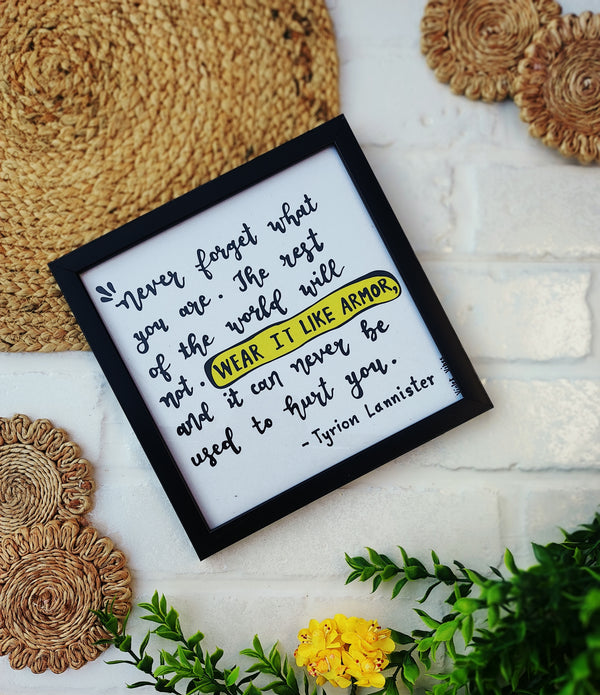 "Never forget what
you are. The rest
of the world will
not. WEAR IT LIKE ARMOR,
and it can never be
used to hurt you.
- Tyrion Lannister